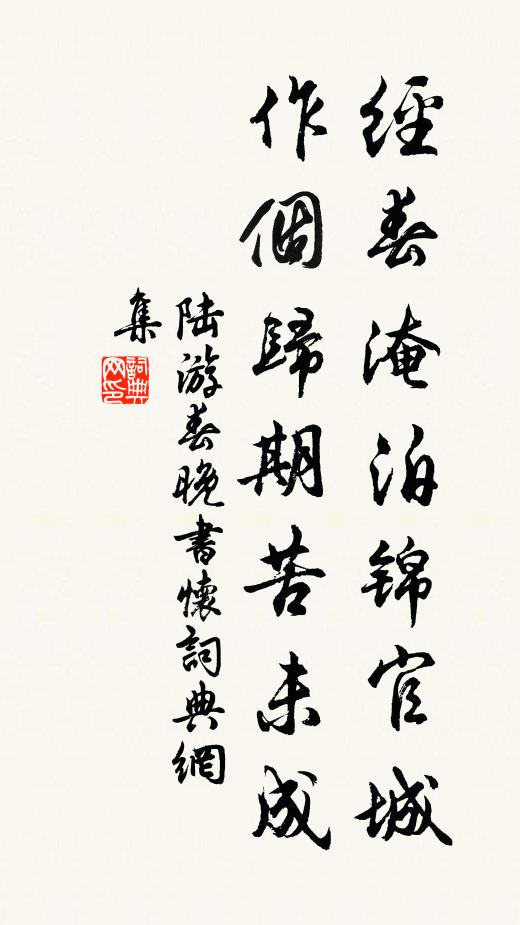 經春淹泊錦官城
作個歸期苦未成
陸游春晚書懷詞典網
集
詞典
网印